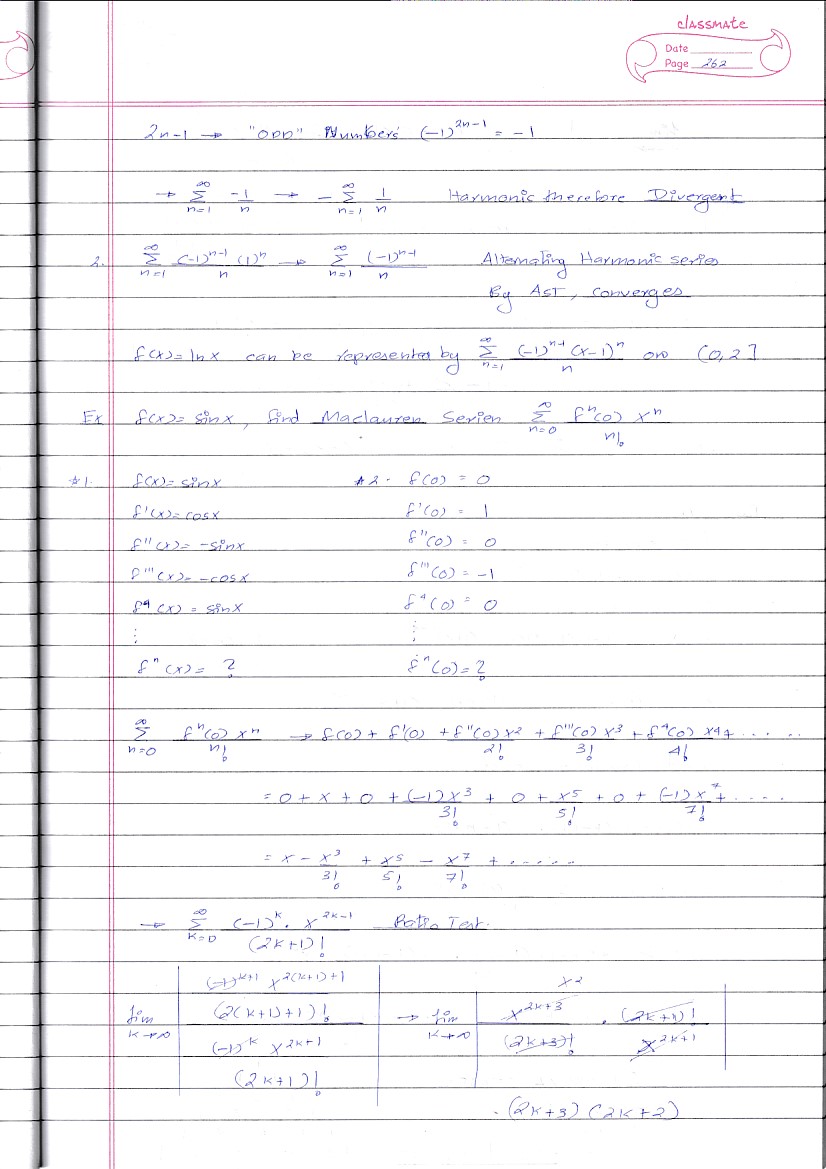 classmate
Date
Page 262
2n-1 → "ODD" Numbers (-1)^{2n-1} = -1
→ ∞ Σ n=1 -1/n → - ∞ Σ n=1 1/n Harmonic therefore Divergent
2. ∞ Σ n=1 (-1)^{n-1} (1)^n / n → ∞ Σ n=1 (-1)^{n-1} / n Alternating Harmonic series
By AST, converges
f(x)=lnx can be represented by ∞ Σ n=1 (-1)^{n-1} (x-1)^n / n on (0,2]
Ex f(x)=sinx, find Maclauren Serien ∞ Σ n=0 f^n(0) x^n / n!
*1. f(x)=sinx *2. f(0) = 0
f'(x)=cosx f'(0) = 1
f''(x)=-sinx f''(0) = 0
f'''(x)=-cosx f'''(0) = -1
f^4(x) = sinx f^4(0) = 0
⋮ ⋮
f^n(x) = ? f^n(0) = ?
∞ Σ n=0 f^n(0) x^n / n! → f(0) + f'(0) + f''(0) x^2 / 2! + f'''(0) x^3 / 3! + f^4(0) x^4 / 4! + .....
= 0 + x + 0 + (-1)x^3 / 3! + 0 + x^5 / 5! + 0 + (-1)x^7 / 7! + ....
= x - x^3 / 3! + x^5 / 5! - x^7 / 7! + ......
→ ∞ Σ k=0 (-1)^k . x^{2k-1} / (2k+1)! Ratio Test.
lim k→∞ | (-1)^{k+1} x^{2(k+1)+1} / (2(k+1)+1)! / (-1)^k x^{2k+1} / (2k+1)! | → lim k→∞ | x^2 x^{2k+3} / (2k+3)! . (2k+1)! / x^{2k+1} |
. (2k+3) (2k+2)